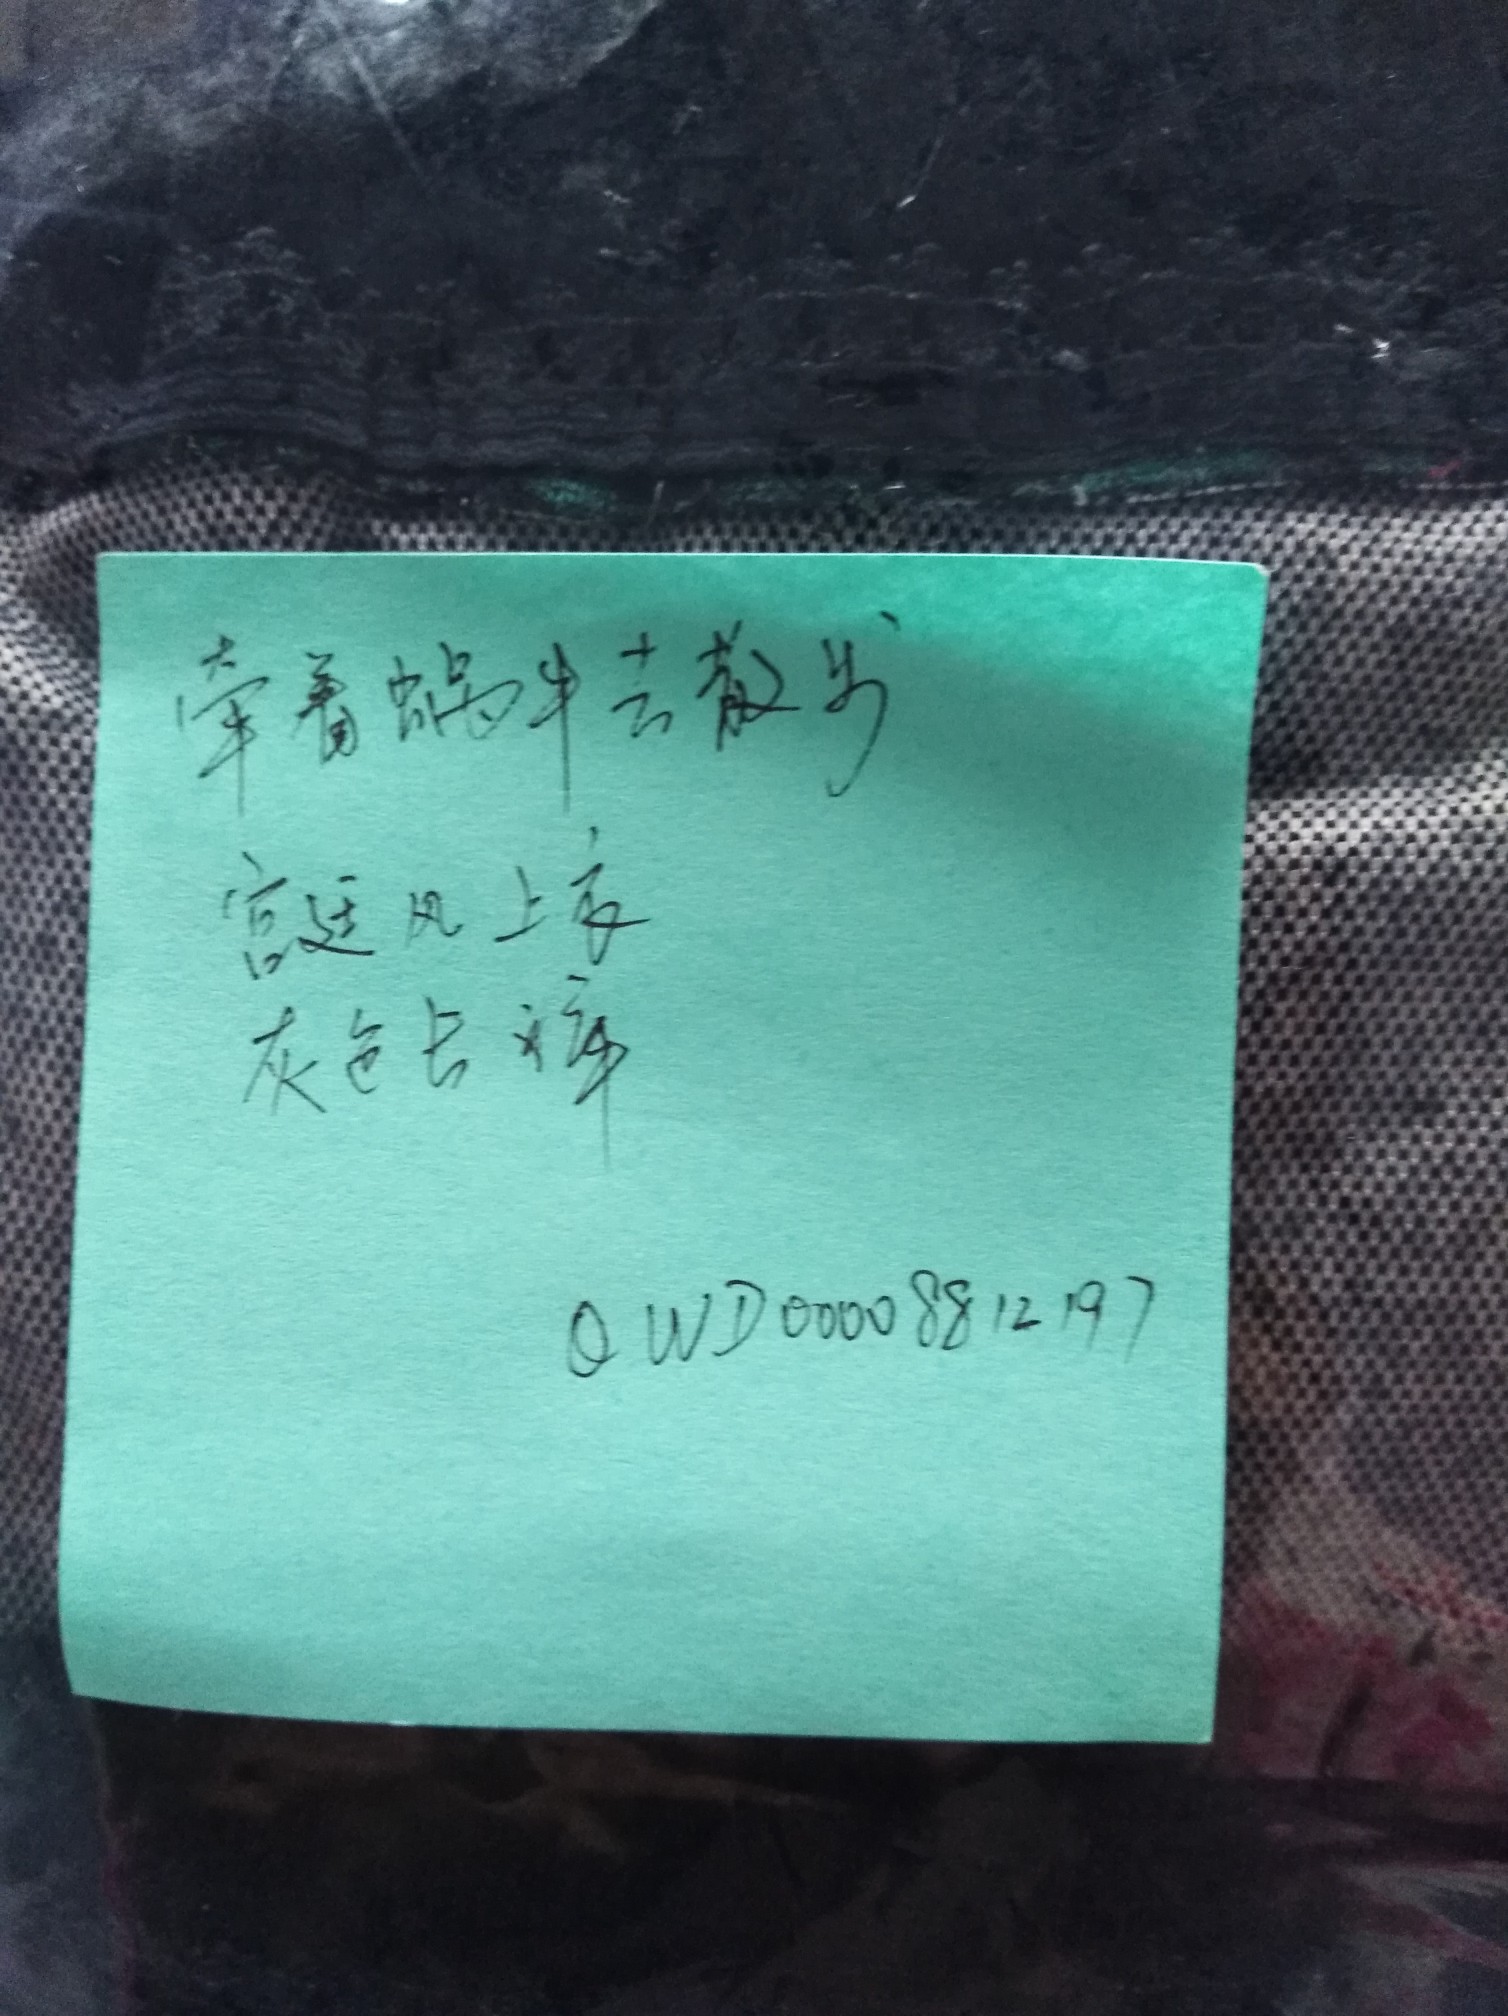 牵着蜗牛去散步
宫廷风上衣
灰色长裤
QWD00008812197